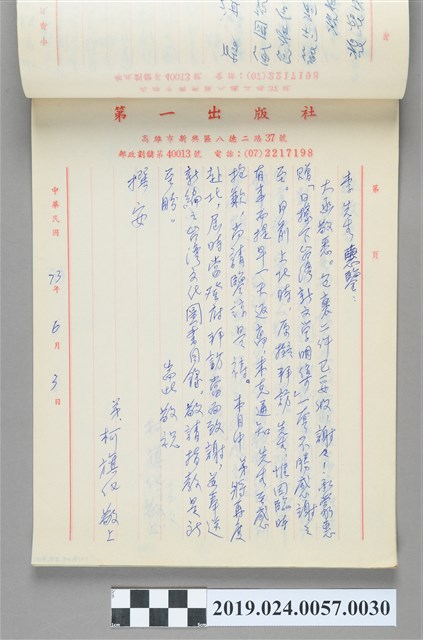 第一出版社
高雄市新興區八德二路37號
郵政劃儲第40013號 電話:(07)2217198
第 頁
李先生惠鑒:
大函敬悉。包裹二件已妥收,謝謝!承蒙惠
贈「日據下台灣新文學明集」一厚不勝感謝之
至。日前上北時,原擬拜訪先生,惟因臨時
有事而提早一天返高,未克通知先生至感
抱歉,尚請鑒諒是待。本月中弟將再度
赴北,屆時當登府拜訪當面致謝,並奉送
新編之台灣文化圖書目錄。敬請指教是所
至盼。
耑此 敬祝
撰安
弟 柯旗化 敬上
中華民國 73年 6月 3日
2019.024.0057.0030